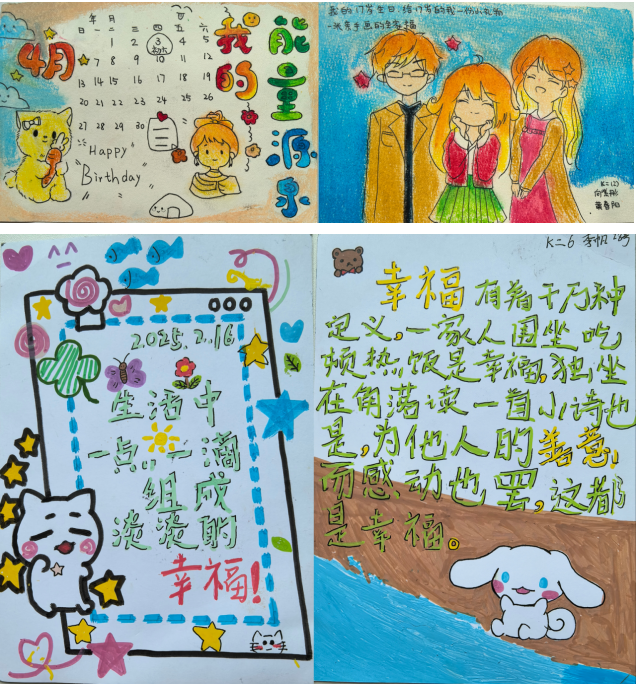 4月
年 月
日 一 二 三 四 五 六
1 2 3 4 5
初六
7 8 9 10 11 12
13 14 15 16 17 18 19
20 21 22 23 24 25 26
27 28 29 30
Happy
Birthday
我的
能量源泉
我的17岁生日,给17岁的我一份小礼物
一张手画的全家福
K二(2)
2025.2.16
生活中
一点一滴
组成
淡淡的
幸福!
K二6
幸福有着千万种
定义,一家人围坐吃
顿热饭是幸福,独坐
在角落读一首小诗也
是,为他人的善意
而感动也罢,这都
是幸福。